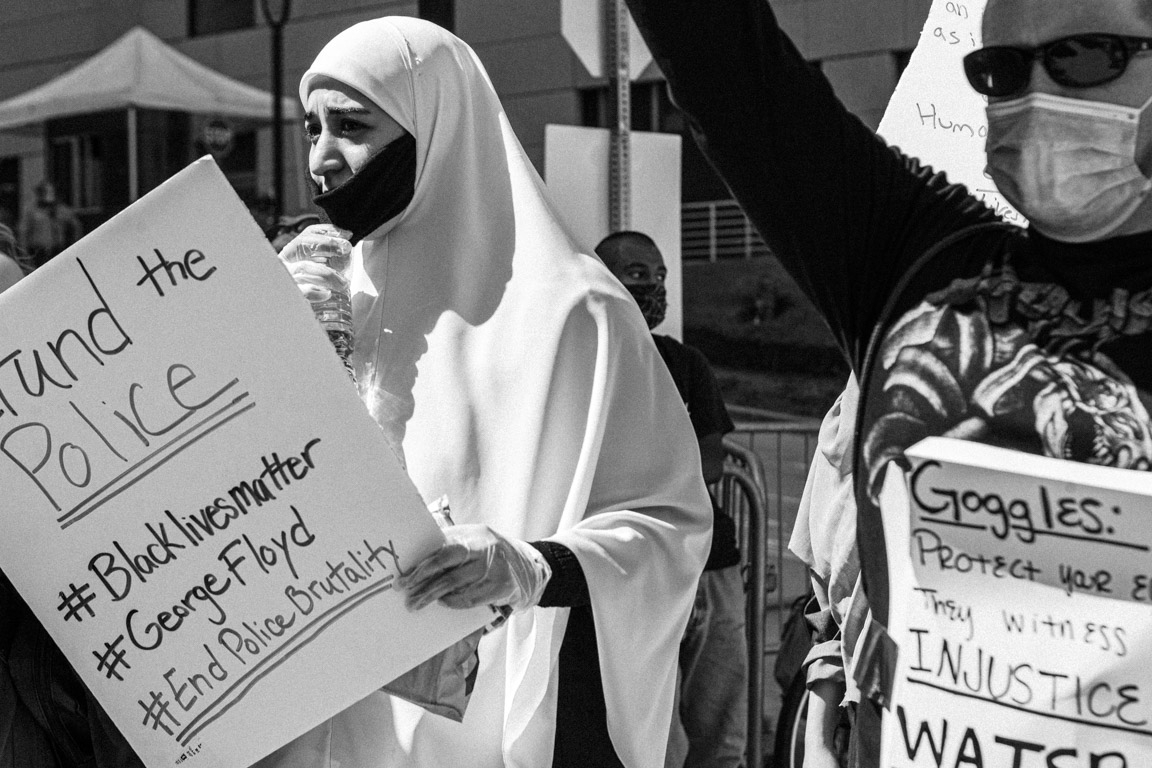 fund the
Police
#Blacklivesmatter
#GeorgeFloyd
#End Police Brutality
an
as i
Huma
lives
Goggles:
Protect your E
They witness
INJUSTICE
WATER